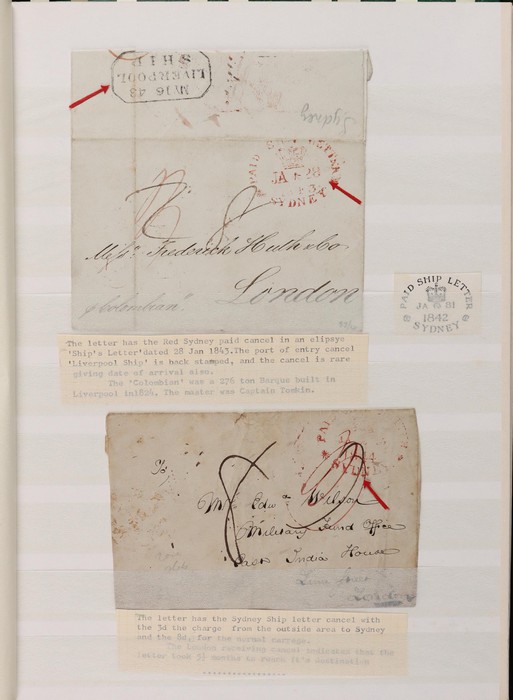 MY 16 43
LIVERPOOL
SHIP
Sydney
PAID SHIP LETTER
JA 28
SYDNEY
8
Messrs. Frederick Huth & Co
London
p Colombian
PAID SHIP LETTER
JA 31
1842
SYDNEY
The letter has the Red Sydney paid cancel in an elipsye
'Ship's Letter'dated 28 Jan 1843.The port of entry cancel
'Liverpool Ship' is back stamped, and the cancel is rare
giving date of arrival also.
The 'Colombian' was a 276 ton Barque built in
Liverpool in1826. The master was Captain Tomkin.
To
8
SYDNEY
Mr Edwd Wilson
Military Fund Office
East India House
London
The letter has the Sydney Ship letter cancel with
the 3d the charge from the outside area to Sydney
and the 8d, for the normal carrage.
The London receiving cancel indicates that the
letter took 3½ months to reach it's destination